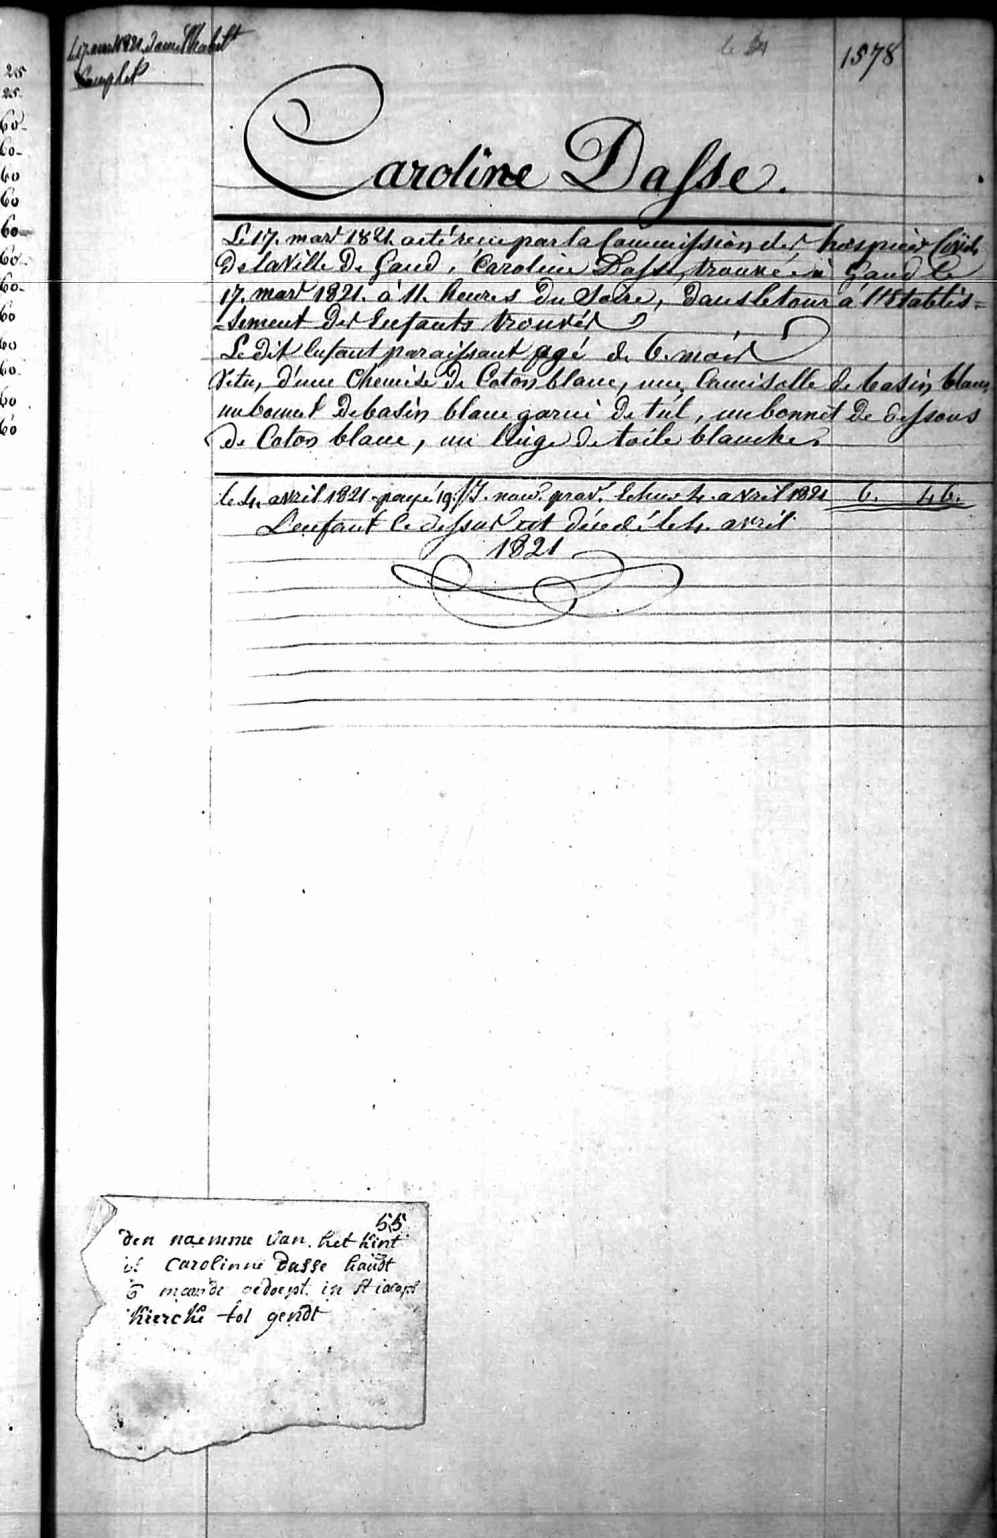 1578
Caroline Dasse.
Le 17. mars 1821. a été recue par la Commission des hospices Civils
De la Ville De Gand, Caroline Dasse, trouvée à Gand le
17. mars 1821. à 11. heures Du Soire, Dans le tour à l'Etablis=
=sement Des Enfants trouvés
Le dit Enfant paraissant agé de 6. mois
Vetu, d'une Chemise De Coton blanc, une Camisolle de basin blanc,
un bonnet De basin blanc garni de tul, un bonnet de dessous
de Coton blanc, un linge de toile blanche.
le 4. avril 1821 payé 19 J. nour. grav. Echue 4. avril 1821 6. 46.
L'enfant ce dessus est décedé le 4. avril
1821
25
25
60
60
60
60
60
60
60
60
60
60
60
60
55
den naemme van het kint
is Carolinne Dasse haudt
6 mande gedoept in St iacops
kiercke tot gendt